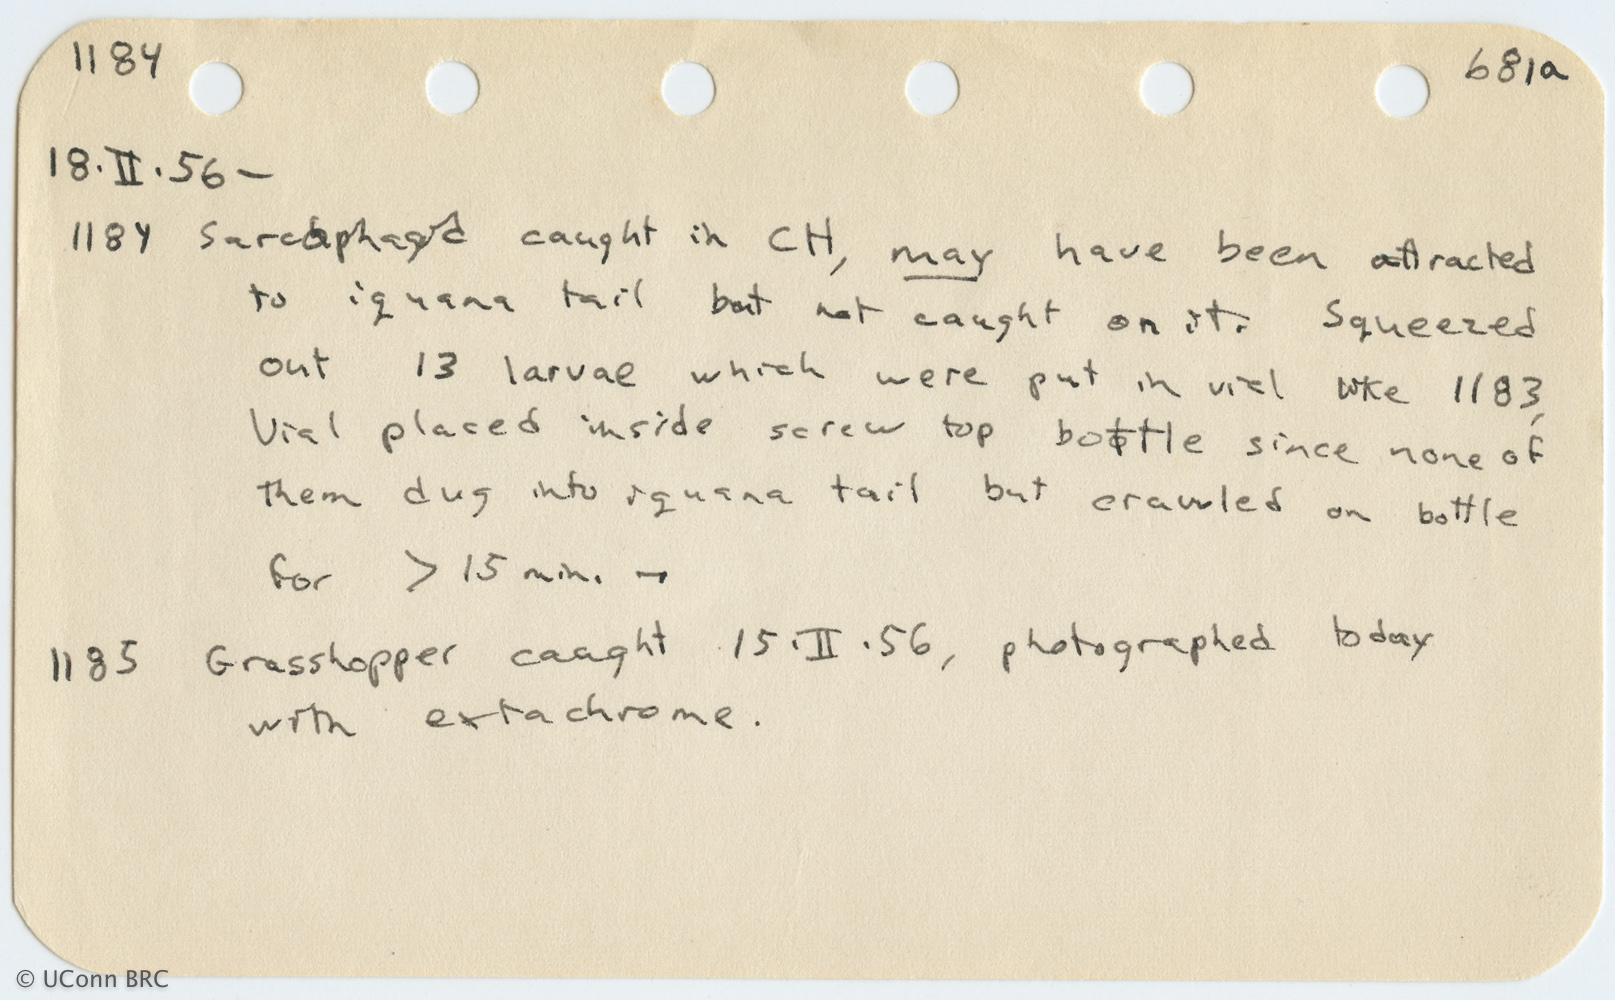 1184 681a
18.II.56 —
1184 Sarcophagid caught in CH, may have been attracted
to iguana tail but not caught on it. Squeezed
out 13 larvae which were put in vial like 1183,
Vial placed inside screw top bottle since none of
them dug into iguana tail but crawled on bottle
for > 15 min. —
1185 Grasshopper caught 15.II.56, photographed today
with extachrome.
© UConn BRC